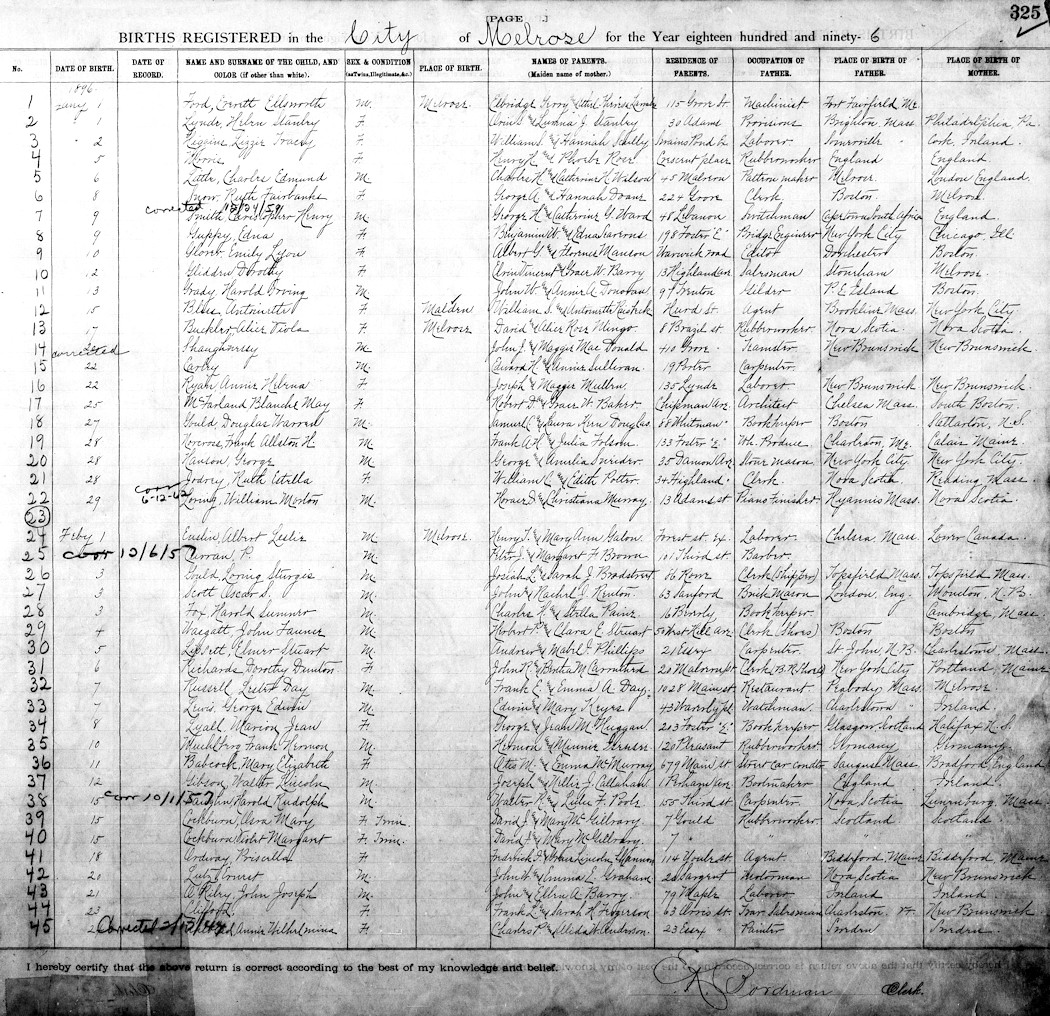 [PAGE ] 325
BIRTHS REGISTERED in the City of Melrose for the Year eighteen hundred and ninety- 6
No. DATE OF BIRTH. DATE OF RECORD. NAME AND SURNAME OF THE CHILD, AND COLOR (if other than white). SEX & CONDITION (as Twins, Illegitimate, &c.) PLACE OF BIRTH. NAMES OF PARENTS. (Maiden name of mother.) RESIDENCE OF PARENTS. OCCUPATION OF FATHER. PLACE OF BIRTH OF FATHER. PLACE OF BIRTH OF MOTHER.
1896
1 Jany 1 Ford, Ellsworth M. Melrose Elbridge Gerry & 115 Grove St Machinist Fort Fairfield Me.
2 1 Lynde, Helen Stantry F. & Stantry 30 Adams Provisions Brighton, Mass. Philadelphia, Pa.
3 2 Lizzie Tracey F. William & Hannah Swains Pond Laborer Somerville Cork, Ireland.
4 5 Morris F. Henry & Phoebe Rose Crescent place Rubberworker England England
5 6 Little, Charles Edmund M. Charles H. & Catherine H. Wilson 45 Malvern Pattern maker Melrose London England.
6 8 Snow, Ruth Fairbanks F. George A. & Hannah Doane 224 Grove Clerk Boston. Melrose
corrected 12/24/59
7 9 Smith Christopher Henry M. George H. & Catherine G. Ward 48 Lebanon Switchman Capetown South Africa England.
8 9 Guppy, Edna F. Benjamin W. & Edna 198 Foster E. Bridge Engineer New York City Chicago, Ill
9 10 Glover Emily Lyon F. Albert G. & Florence Manson Warwick road Editor Dorchester Boston.
10 12 Glidden Dorothy F. & Grace W. Barry 13 Highland av. Salesman Stoneham Melrose.
11 13 Grady, Harold Irving M. John W. & Annie A. Donovan 97 Trenton Gilder P.E. Island Boston.
12 15 Bliss, Antoinette F. Malden William S. & Antoinette Hurd St. Agent Brookline Mass. New York City
13 17 Buckler, Alice Viola F. Melrose David & Alice Rose Mingo. 8 Brazil St Rubberworker Nova Scotia Nova Scotia.
14 corrected Shaughnessy M. John J. & Maggie Mac Donald 410 Grove Teamster New Brunswick New Brunswick
15 22 Carley M. Edward H. & Annie Sullivan. 19 Porter Carpenter
16 22 Ryan Annie Helena F. Joseph & Maggie Mullen. 135 Lynde Laborer New Brunswick New Brunswick.
17 25 McFarland Blanche May F. Robert D. & Grace W. Baker. Chipman Av. Architect Chelsea Mass. South Boston.
18 27 Gould, Douglas Warren M. Samuel C. & Laura Kerr Douglas. 88 Whitman Bookkeeper Boston N.S.
19 28 Norcross, Frank Allston H. M. Frank A.H. & Julia Folsom. 133 Foster "E" Wh. Produce Charleston, Me. Calais Maine.
20 28 Hanson, George M. George & Amelia 35 Damon Av. Stone Mason New York City. New York City.
21 28 Jodrey Ruth Estella F. William C. & Edith Potter. 34 Highland Clerk. Nova Scotia Reading, Mass.
corr 6-12-62
22 29 Loring, William Morton M. Horace D. & Christiana Murray, 13 Adams St Piano Finisher Hyannis Mass. Nova Scotia.
23
24 Feby 1 Albert Leslie M. Melrose Henry T. & Mary Ann Galon. Forrest St. Ex. Laborer Chelsea Mass. Lower Canada.
25 corr 12/6/57 Curran, P. M. Peter J. & Margaret F. Brown 101 Third St. Barber
26 3 Gould, Loring Sturgis M. Josiah L. & Sarah J. Bradstreet 86 Rowe Clerk (Shipper) Topsfield Mass. Topsfield Mass.
27 3 Scott Oscar S. M. John & Rachel J. Kenton. 63 Sanford Brick Mason London, Eng. Moncton, N.B.
28 3 Fox Harold Sumner M. Charles H. & Stella Paine 16 Beverly Bookkeeper Cambridge, Mass
29 4 Wasgatt, John Faunce M. Herbert P. & Clara E. Stewart 50 West Hill av. Clerk (Shoes) Boston Boston
30 5 Lissett, Elmer Stuart M. Andrew & Mabel J. Phillips 21 Essex Carpenter. St. John N.B. Charlestown, Mass.
31 6 Richards Dorothy Denton F. John R. & Bertha M. Carruthers 20 Malvern St. Clerk (B.R. Shoes) New York City Portland Maine
32 7 Russell, Lester Day M. Frank E. & Emma A. Day, 1028 Main St. Restaurant Peabody Mass. Melrose.
33 7 Lewis, George Edwin M. Edwin & Mary Keyes 43 Waverly pl. Watchman Charlestown Ireland.
34 8 Lyall, Marion Jean F. George & Jean M. Huggan. 203 Foster "E" Bookkeeper Glasgow Scotland Halifax N.S.
35 10 Frank Hermon M. Hermon & Minnie 120 Pleasant Rubberworker Germany Germany.
36 11 Babcock, Mary Elizabeth F. Otis M. & Emma McMurray 679 Main St Street Car Condtr Saugus Mass. Bradford, England
37 12 Gibson, Walter Lincoln M. Joseph & Nellie J. Callahan. 1 Perham Av. Bootmaker England Ireland.
38 15 corr 10/1/57 Harold Rudolph M. Walter R. & Lillie F. Poole 155 Third St Carpenter Nova Scotia Lunenburg, Mass.
39 15 Cockburn, Mary F. Twin. David J. & Mary McGillvray. 7 Gould Rubberworker Scotland Scotland
40 15 Cockburn, Violet Margaret F. Twin. David J. & Mary McGillvray. 7 " " "
41 18 Ordway, Priscilla F. Frederick F. & Lincoln 114 Youle St. Agent Biddeford, Maine Biddeford, Maine
42 20 Lutz, Forest M. John W. & Emma E. Graham. 28 Sargent Motorman Nova Scotia New Brunswick
43 21 O'Riley, John Joseph M. John & Ellen A. Barry. 79 Maple Laborer Ireland Ireland.
44 23 Clifford. F. Frank L. & Sarah H. Ferguson 63 St. Trav. Salesman Charleston, Vt. New Brunswick
45 Corrected 2/13/47 Annie Wilhelmina F. Charles P. & Alleda W. Anderson. 23 Essex " Painter Sweden Sweden.
I hereby certify that the above return is correct according to the best of my knowledge and belief.
Bordman Clerk.